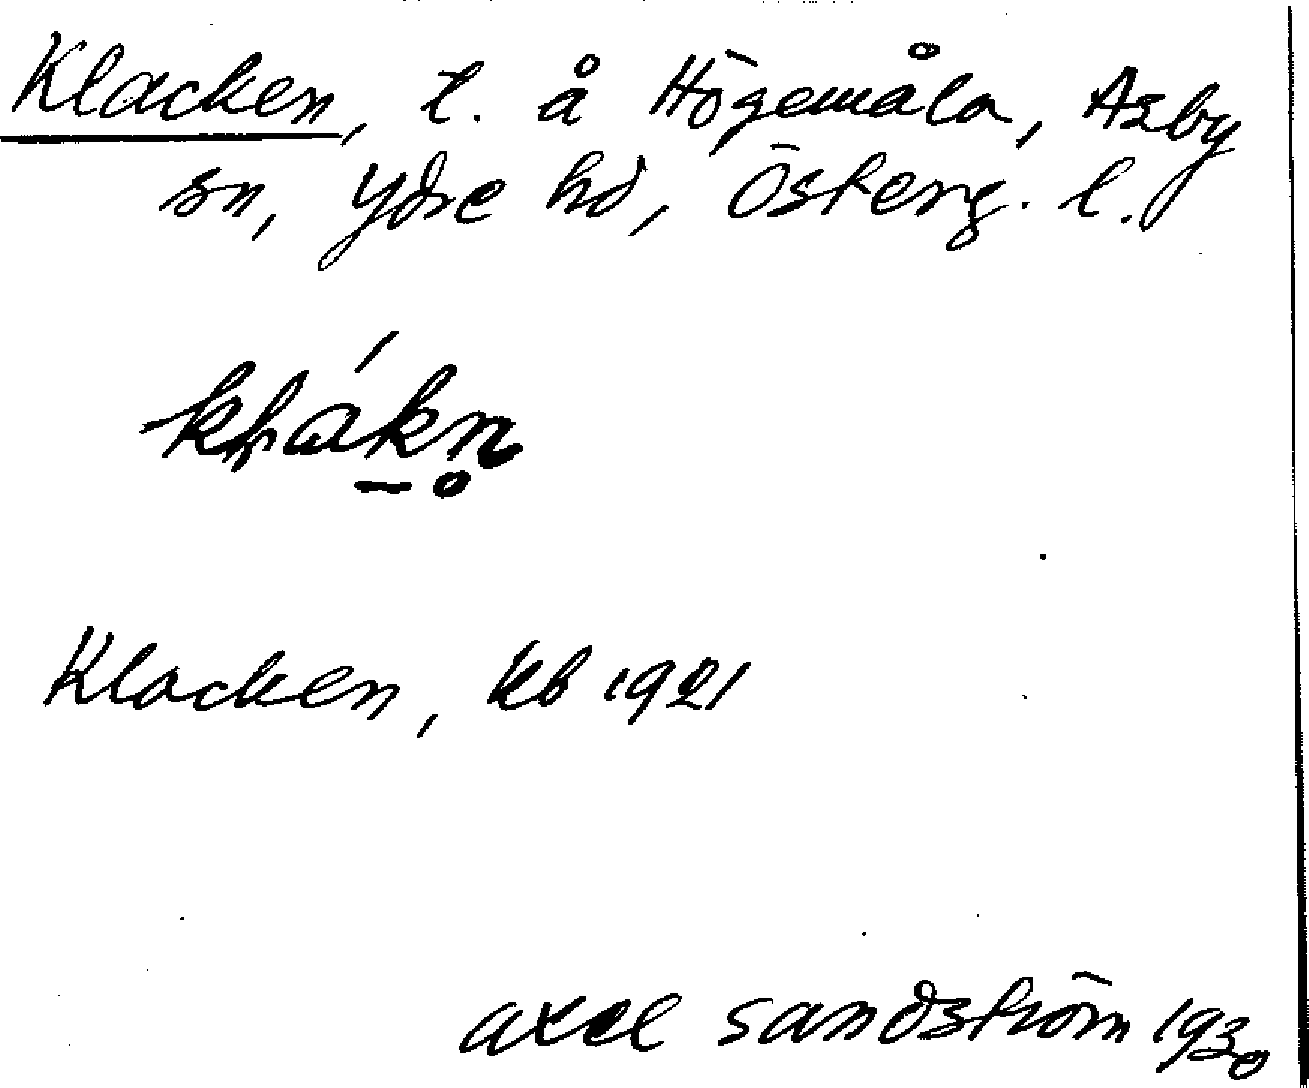 Klacken, t. å Högemåla, Asby
sn, Ydre hd, Österg. l.
kḷákn̥
Klacken, kb 1921
Axel Sandström 1930